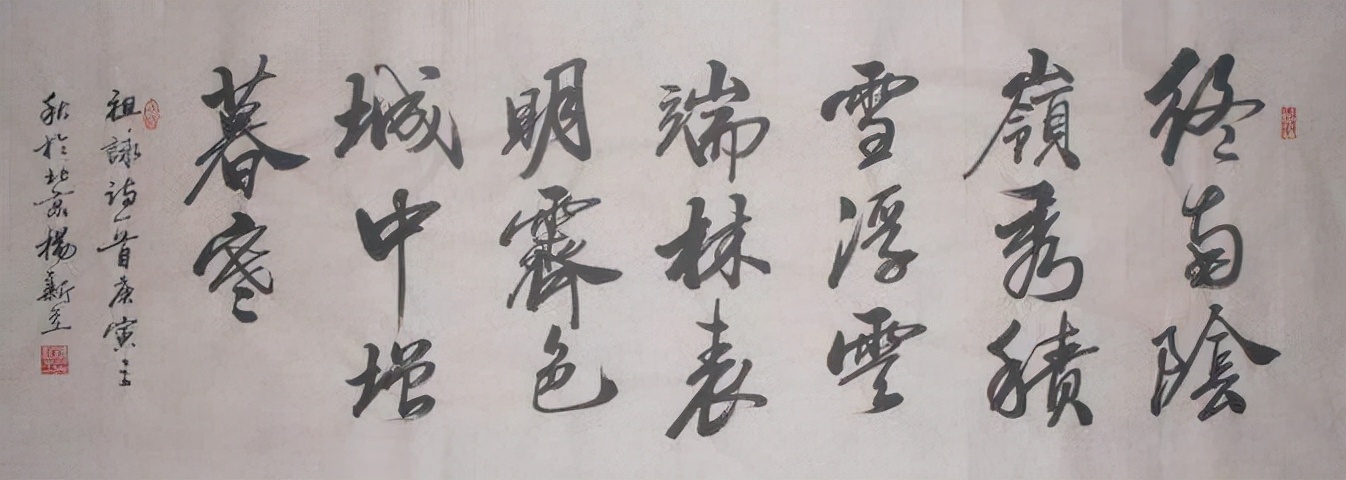 終南陰
嶺秀積
雪浮雲
端林表
明霽色
城中增
暮寒
祖詠詩一首庚寅之
秋於北京楊